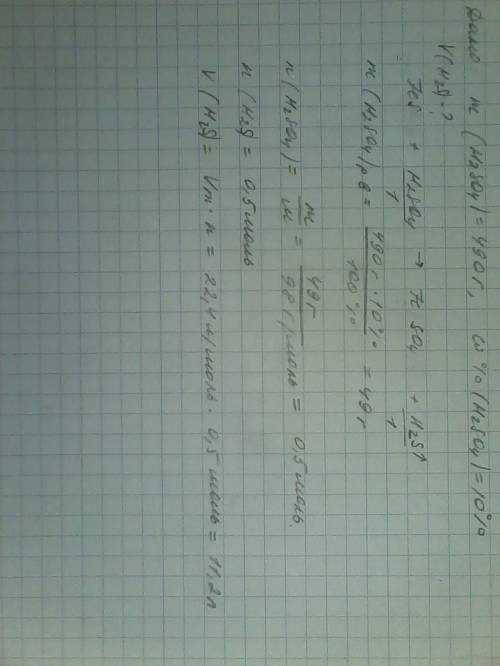 Дано m (H₂SO₄) = 490 г, ω% (H₂SO₄) = 10%
V(H₂S)-?
FeS + H₂SO₄ → FeSO₄ + H₂S↑
1 1
m (H₂SO₄) р.в = 490 г · 10% / 100% = 49 г
n (H₂SO₄) = m/M = 49 г / 98 г/моль = 0,5 моль.
n (H₂S) = 0,5 моль
V (H₂S) = Vm · n = 22,4 л/моль · 0,5 моль = 11,2 л